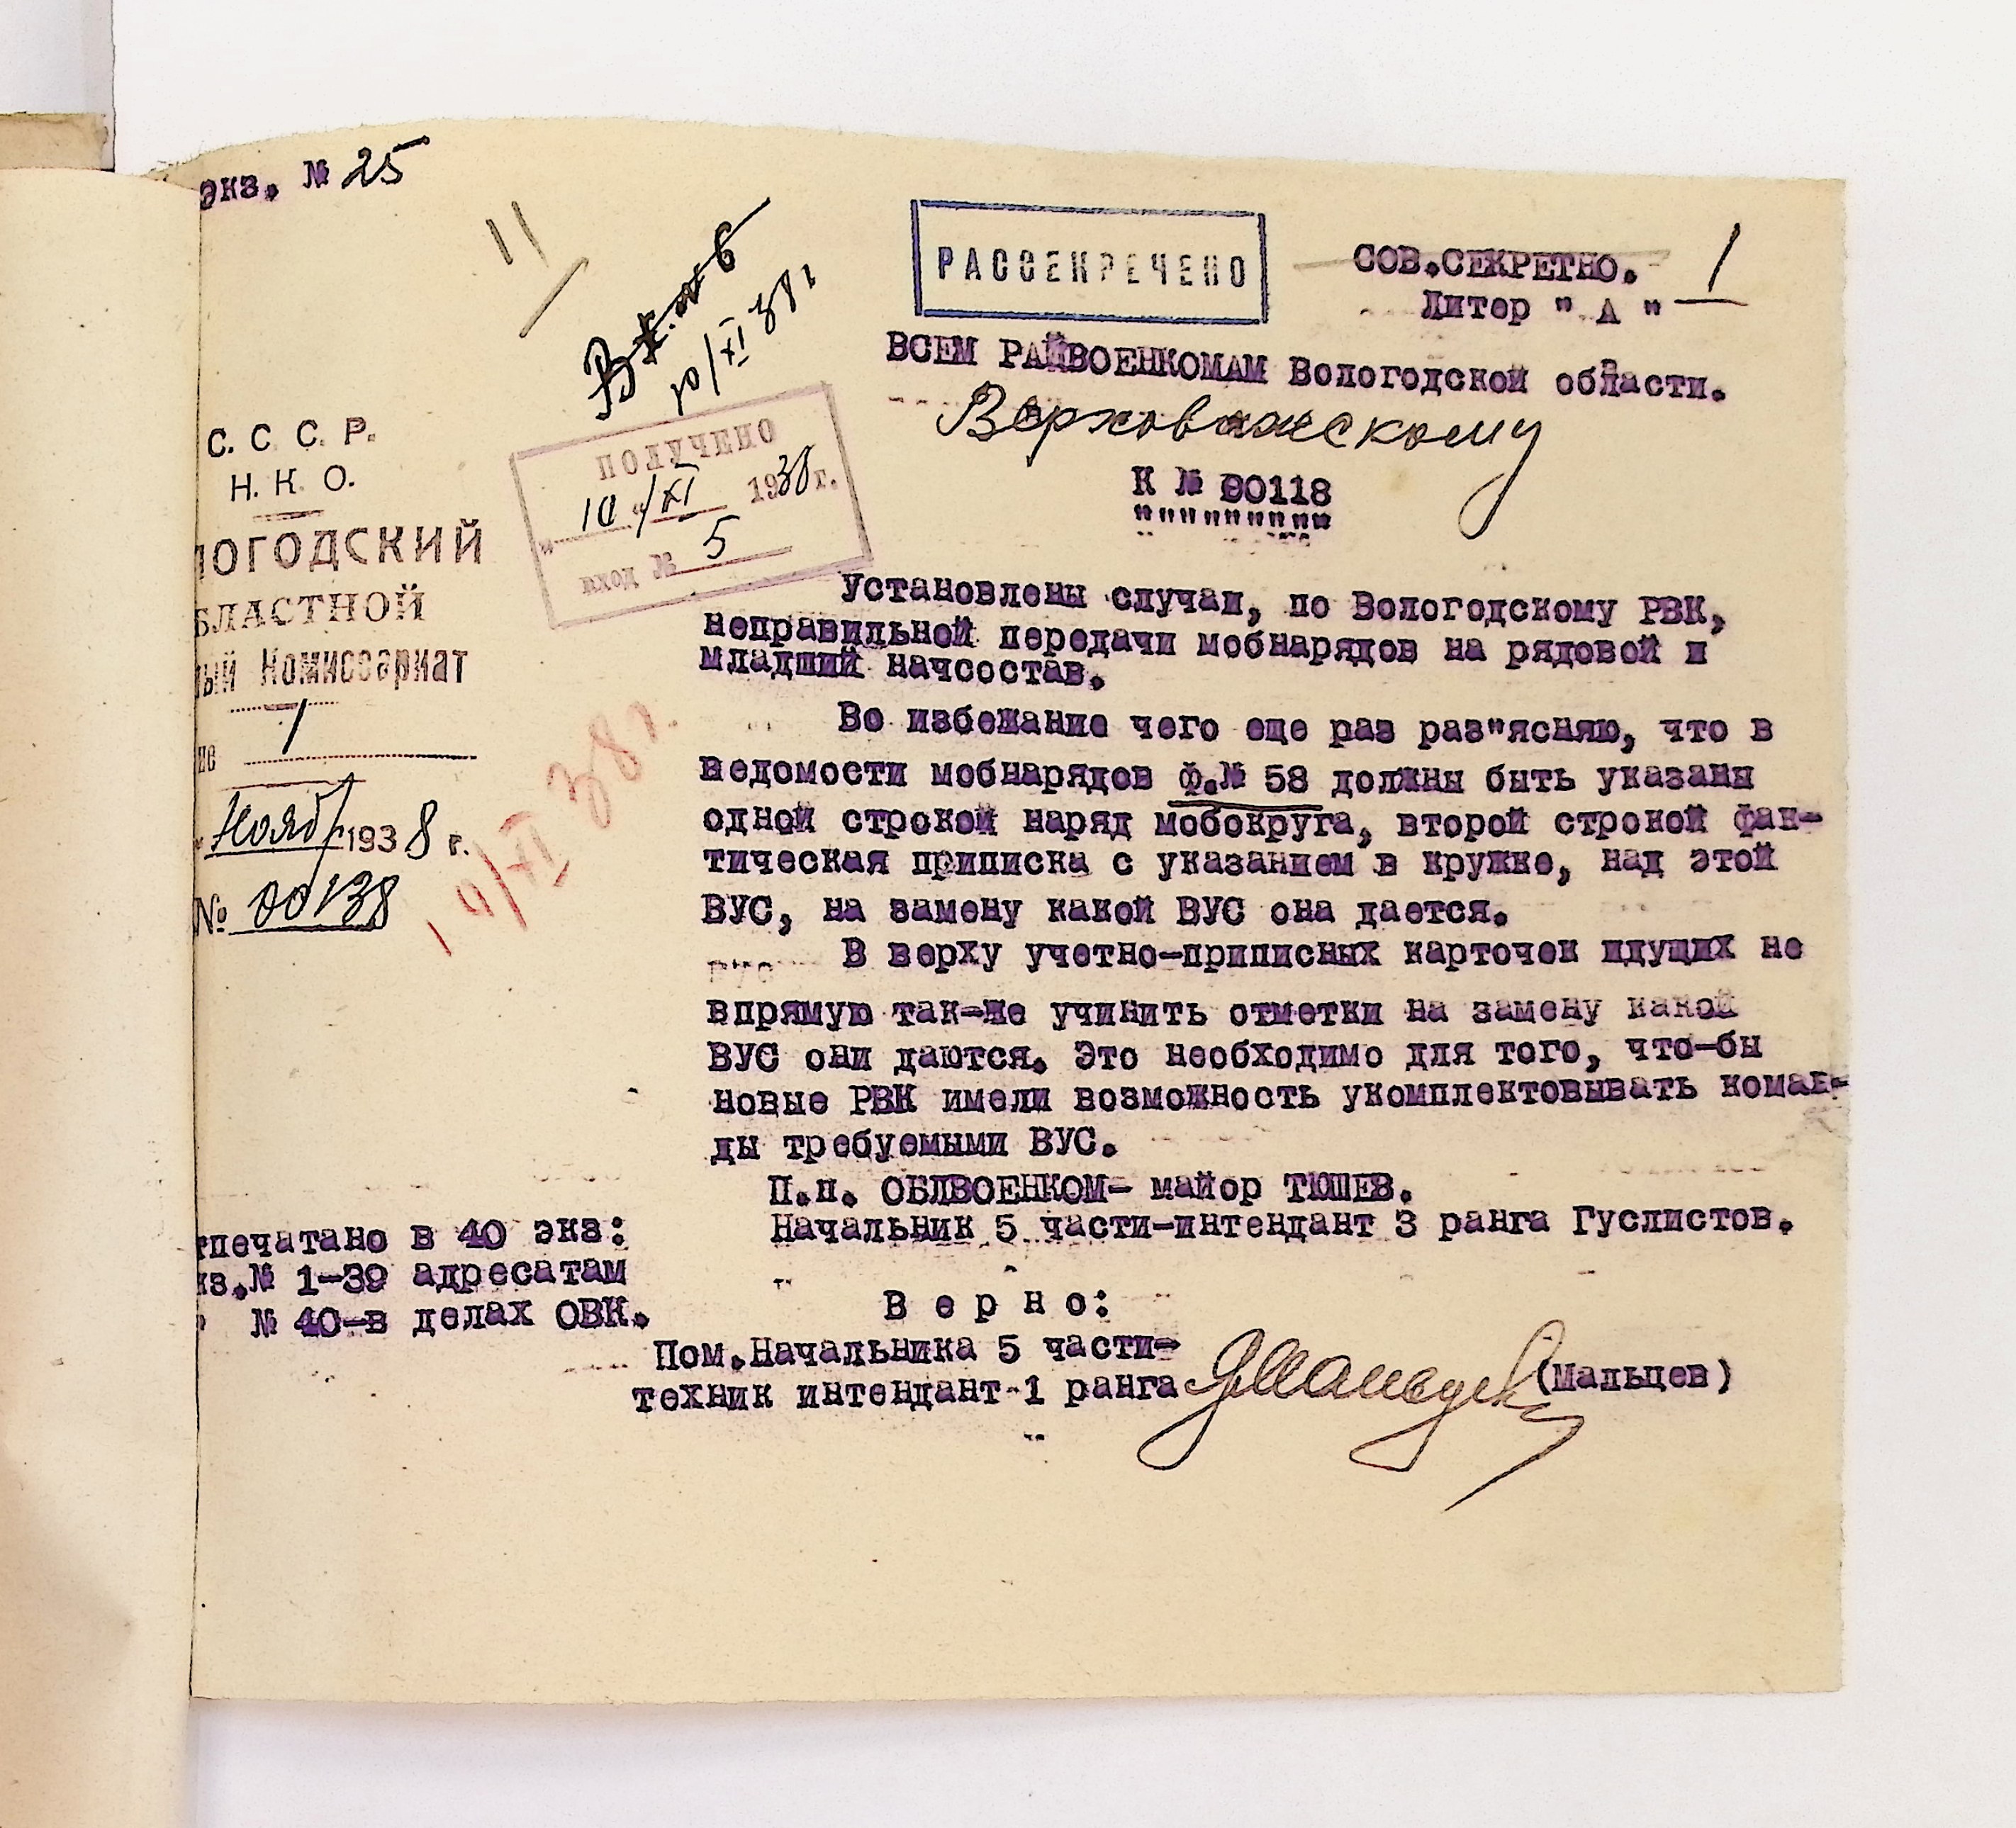 экз. № 25
11
Вх. № 6
10/XI 38 г
РАССЕКРЕЧЕНО
СОВ.СЕКРЕТНО.
Литер " А "
1
ВСЕМ РАЙВОЕНКОМАМ Вологодской области.
Верховажскому
С. С. С. Р.
Н. К. О.
ЛОГОДСКИЙ
БЛАСТНОЙ
ный Комиссариат
1
" Нояб 1938 г.
№ 00138
ПОЛУЧЕНО
" 10 "/XI 1938 г.
вход № 5
10/XI 38 г.
К № 00118
"""""""""""
Установлены случаи, по Вологодскому РВК,
неправильной передачи мобнарядов на рядовой и
младший начсостав.
Во избежание чего еще раз раз"ясняю, что в
ведомости мобнарядов Ф.№ 58 должны быть указаны
одной строкой наряд мобокруга, второй строкой фак-
тическая приписка с указанием в кружке, над этой
ВУС, на замену какой ВУС она дается.
В верху учетно-приписных карточек идущих не
впрямую так-же учинить отметки на замену какой
ВУС они даются. Это необходимо для того, что-бы
новые РВК имели возможность укомплектовывать коман-
ды требуемыми ВУС.
П.п. ОБЛВОЕНКОМ- майор ТЮШЕВ.
Начальник 5 части-интендант 3 ранга Гуслистов.
тпечатано в 40 экз:
кз.№ 1-39 адресатам
" № 40-в делах ОВК.
В е р н о:
Пом.Начальника 5 части-
техник интендант 1 ранга Мальцев (Мальцев)